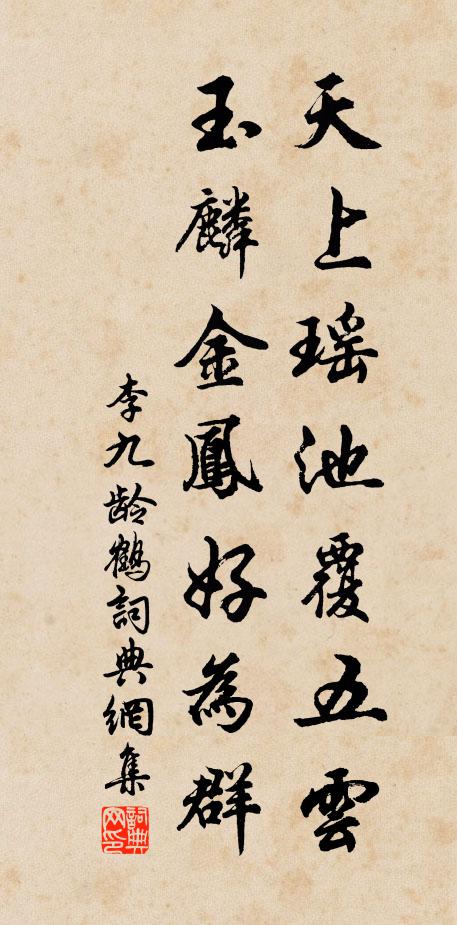 天上瑶池覆五雲
玉麟金鳳好為群
李九齡鶴詞典網集
詞典網印